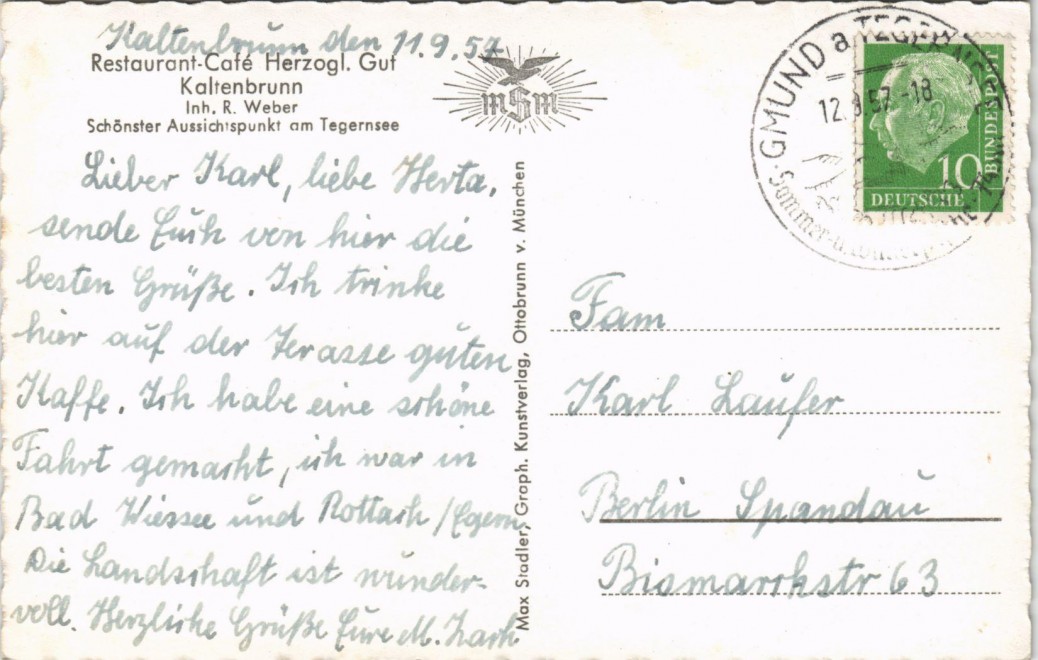 Kaltenbrunn den 11.9.57
Restaurant-Café Herzogl. Gut
Kaltenbrunn
Inh. R. Weber
Schönster Aussichtspunkt am Tegernsee
Lieber Karl, liebe Herta,
sende Euch von hier die
besten Grüße. Ich trinke
hier auf der Terasse guten
Kaffe. Ich habe eine schöne
Fahrt gemacht, ich war in
Bad Wiessee und Rottach/Egern
Die Landschaft ist wunder-
voll. Herzliche Grüße Eure M. Zach
MSM
Max Stadler, Graph. Kunstverlag, Ottobrunn v. München
GMUND a. TEGERNSEE
12.9.57-18
Sommer-u.
DEUTSCHE
BUNDESPOST
10
Fam
Karl Laufer
Berlin Spandau
Bismarckstr 63